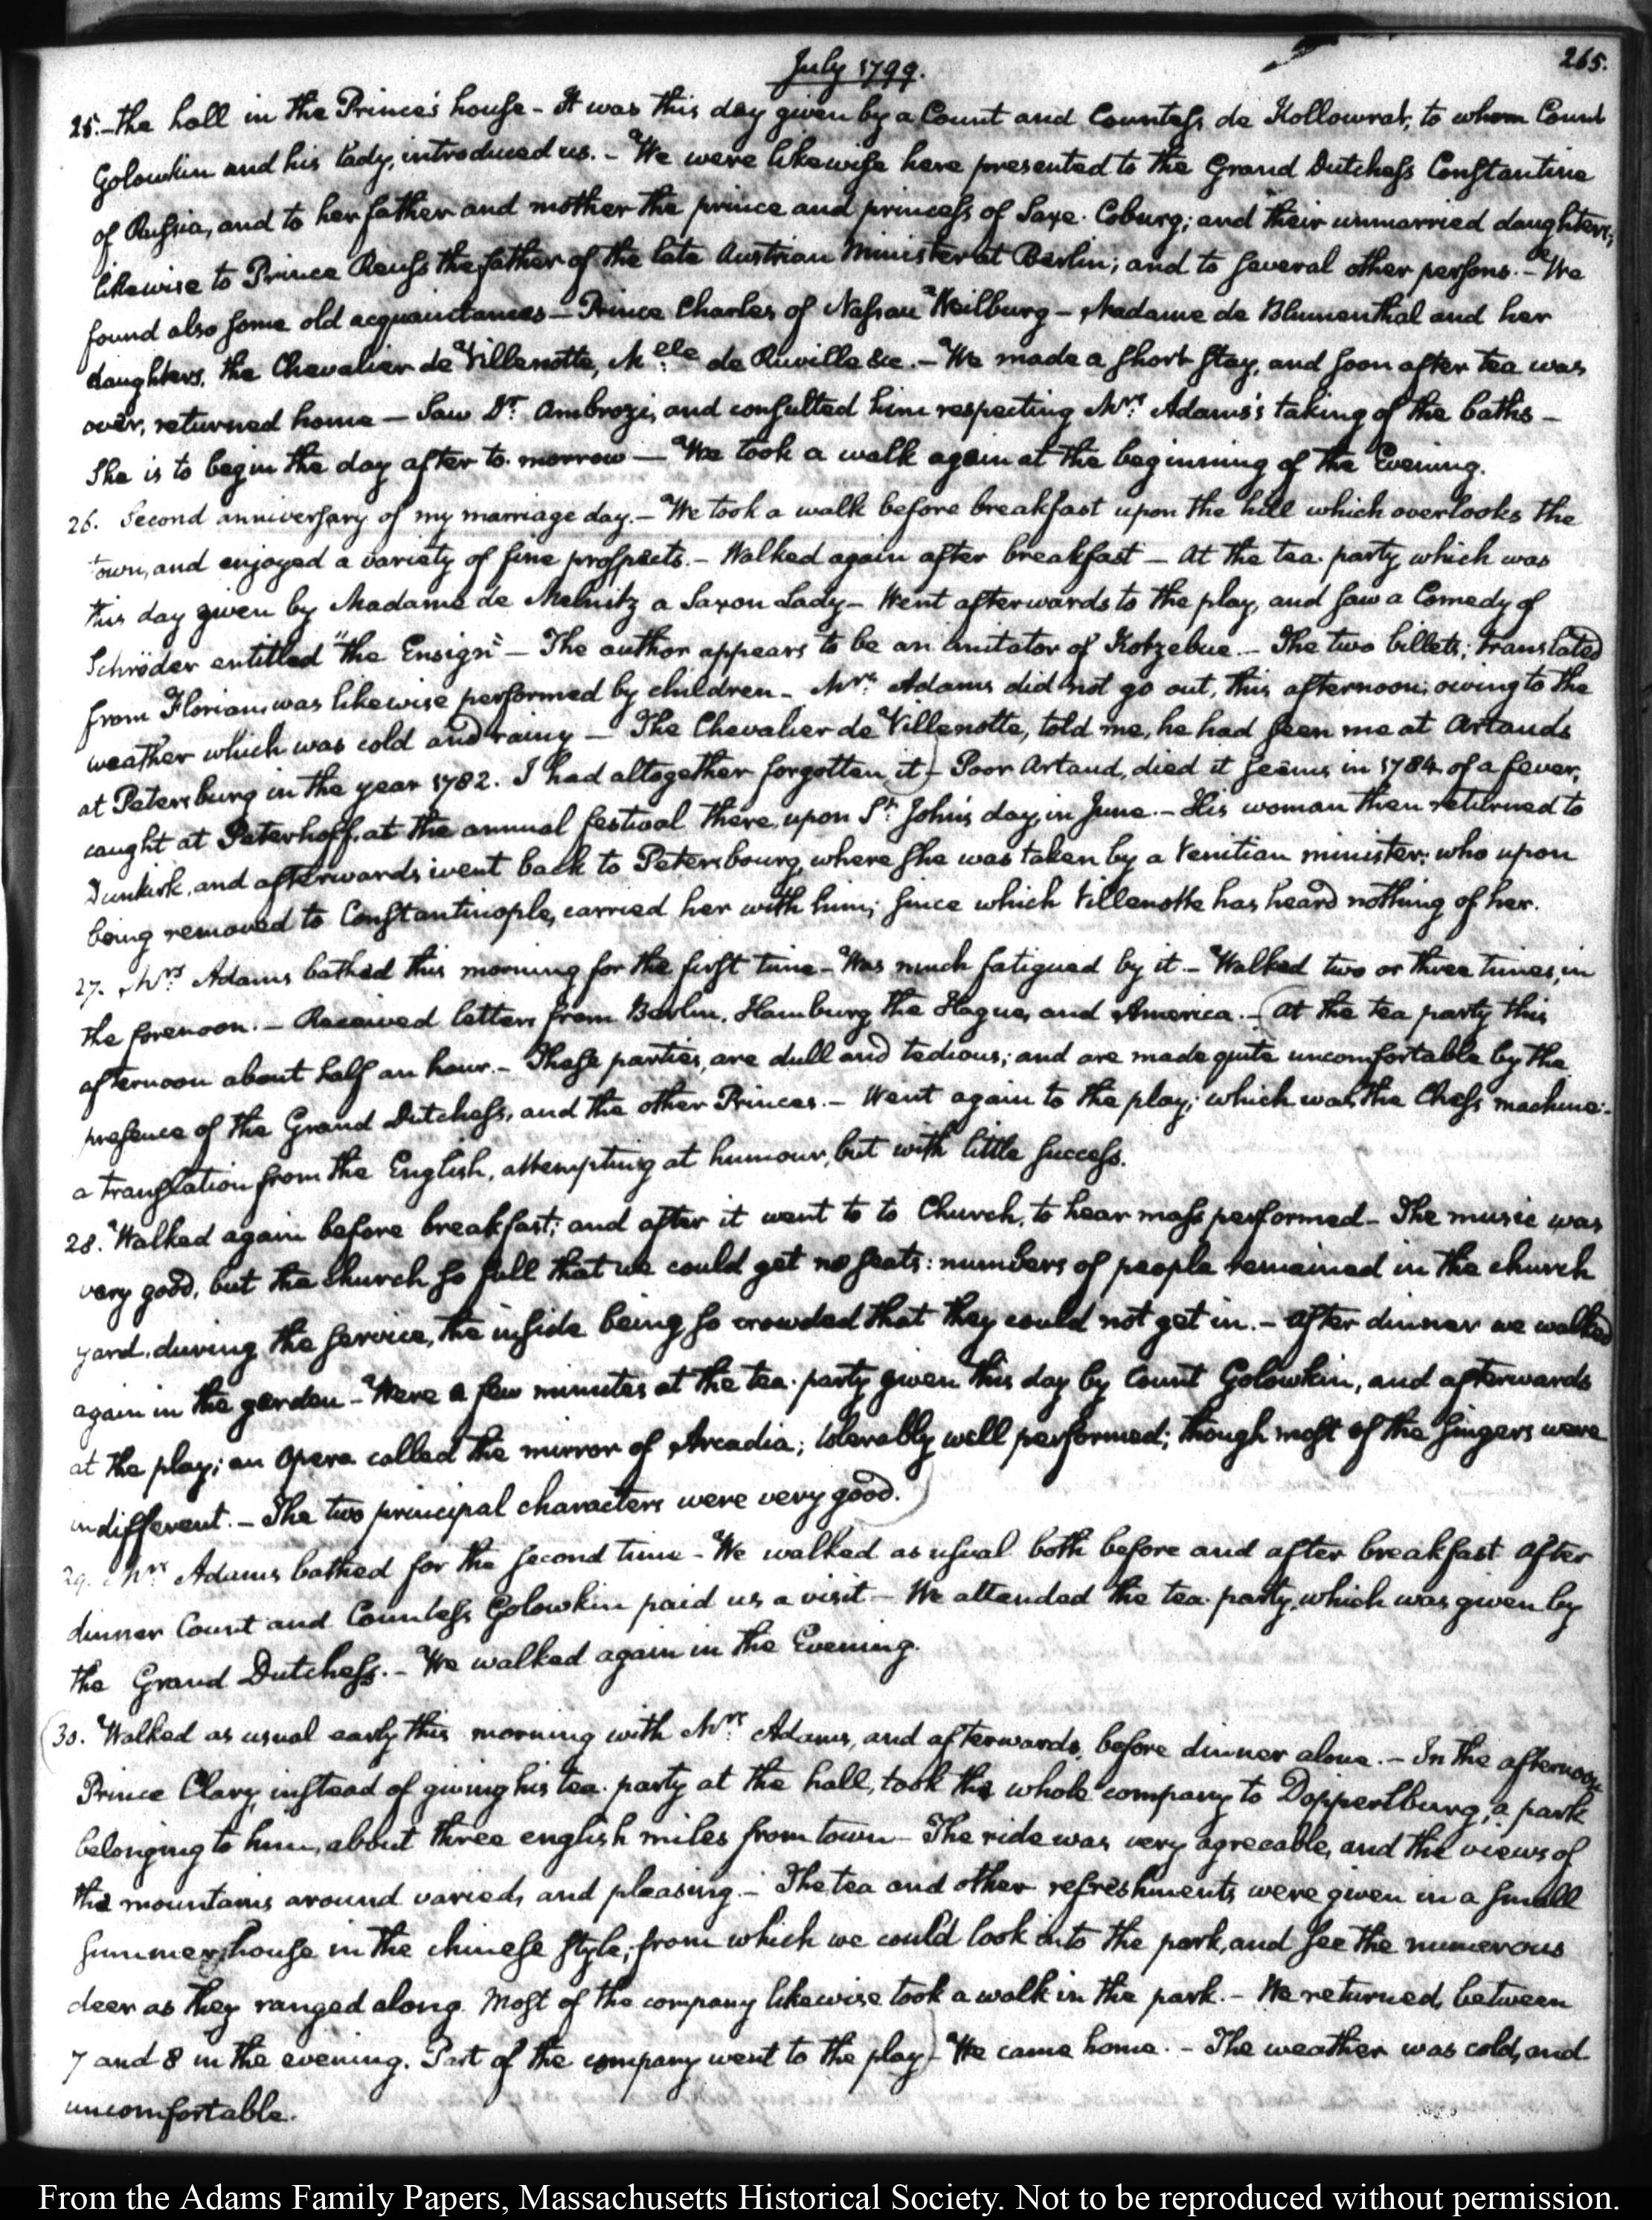 July 1799.
265.
25.—the hall in the Prince's house – It was this day given by a Count and Countess de Kollowrat, to whom Count
Golowkin and his lady, introduced us. – We were likewise here presented to the Grand Dutchess Constantine
of Russia, and to her father and mother the prince and princess of Saxe-Coburg; and their unmarried daughters;
likewise to Prince Reuss the father of the late Austrian Minister at Berlin; and to several other persons. – We
found also some old acquaintances – Prince Charles of Nassau Weilburg – Madame de Blumenthal and her
daughters, the Chevalier de Villenotte, Melle de Ruville &c. – We made a short stay, and soon after tea was
over, returned home – Saw Dr Ambrozi, and consulted him respecting Mrs Adams's taking of the baths –
She is to begin the day after to-morrow – We took a walk again at the beginning of the Evening.
26. Second anniversary of my marriage day. – We took a walk before breakfast upon the hill which overlooks the
town, and enjoyed a variety of fine prospects. – Walked again after breakfast – At the tea-party which was
this day given by Madame de Melnitz a Saxon Lady – Went afterwards to the play, and saw a Comedy of
Schröder entitled "the Ensign" – The author appears to be an imitator of Kotzebue. – The two billets; translated
from Florian, was likewise performed by children – Mrs Adams did not go out, this afternoon; owing to the
weather which was cold and rainy – The Chevalier de Villenotte, told me, he had seen me at Artauds
at Petersburg in the year 1782. I had altogether forgotten it) – Poor Artaud, died it seems in 1784 of a fever,
caught at Peterhoff, at the annual festival there, upon St John's day in June. – His woman then returned to
Dunkirk, and afterwards went back to Petersbourg, where she was taken by a Venitian minister; who upon
being removed to Constantinople, carried her with him; since which Villenotte has heard nothing of her.
27. Mrs Adams bathed this morning for the first time – Was much fatigued by it. – Walked two or three times, in
the forenoon. – Received letters from Berlin, Hamburg the Hague, and America. – (At the tea party this
afternoon about half an hour. – These parties, are dull and tedious; and are made quite uncomfortable by the
presence of the Grand Dutchess, and the other Princes. – Went again to the play; which was the Chess machine:
a translation from the English, attempting at humour, but with little success.
28. Walked again before breakfast; and after it went to to Church, to hear mass performed – The music was
very good, but the church so full that we could get no seats: numbers of people remained in the church
yard, during the service, the inside being so crowded that they could not get in. – After dinner we walked
again in the garden – Were a few minutes at the tea-party given this day by Count Golowkin, and afterwards
at the play; an Opera called the mirror of Arcadia; tolerably well performed; though most of the singers were
indifferent. – The two principal characters were very good.)
29. Mrs Adams bathed for the second time – We walked as usual both before and after breakfast after
dinner Count and Countess Golowkin paid us a visit – We attended the tea-party, which was given by
the Grand Dutchess. – We walked again in the Evening.
(30. Walked as usual early this morning with Mrs Adams, and afterwards, before dinner alone. – In the afternoon
Prince Clary, instead of giving his tea-party at the hall, took the whole company to Dopperlburg, a park
belonging to him, about three english miles from town – The ride was very agreeable, and the views of
the mountains around varied, and pleasing. – The tea and other refreshments were given in a small
summer-house in the chinese style; from which we could look into the park, and see the numerous
deer as they ranged along. Most of the company likewise took a walk in the park. – We returned, between
7 and 8 in the evening. Part of the company went to the play) – We came home. – The weather was cold, and
uncomfortable.
From the Adams Family Papers, Massachusetts Historical Society. Not to be reproduced without permission.